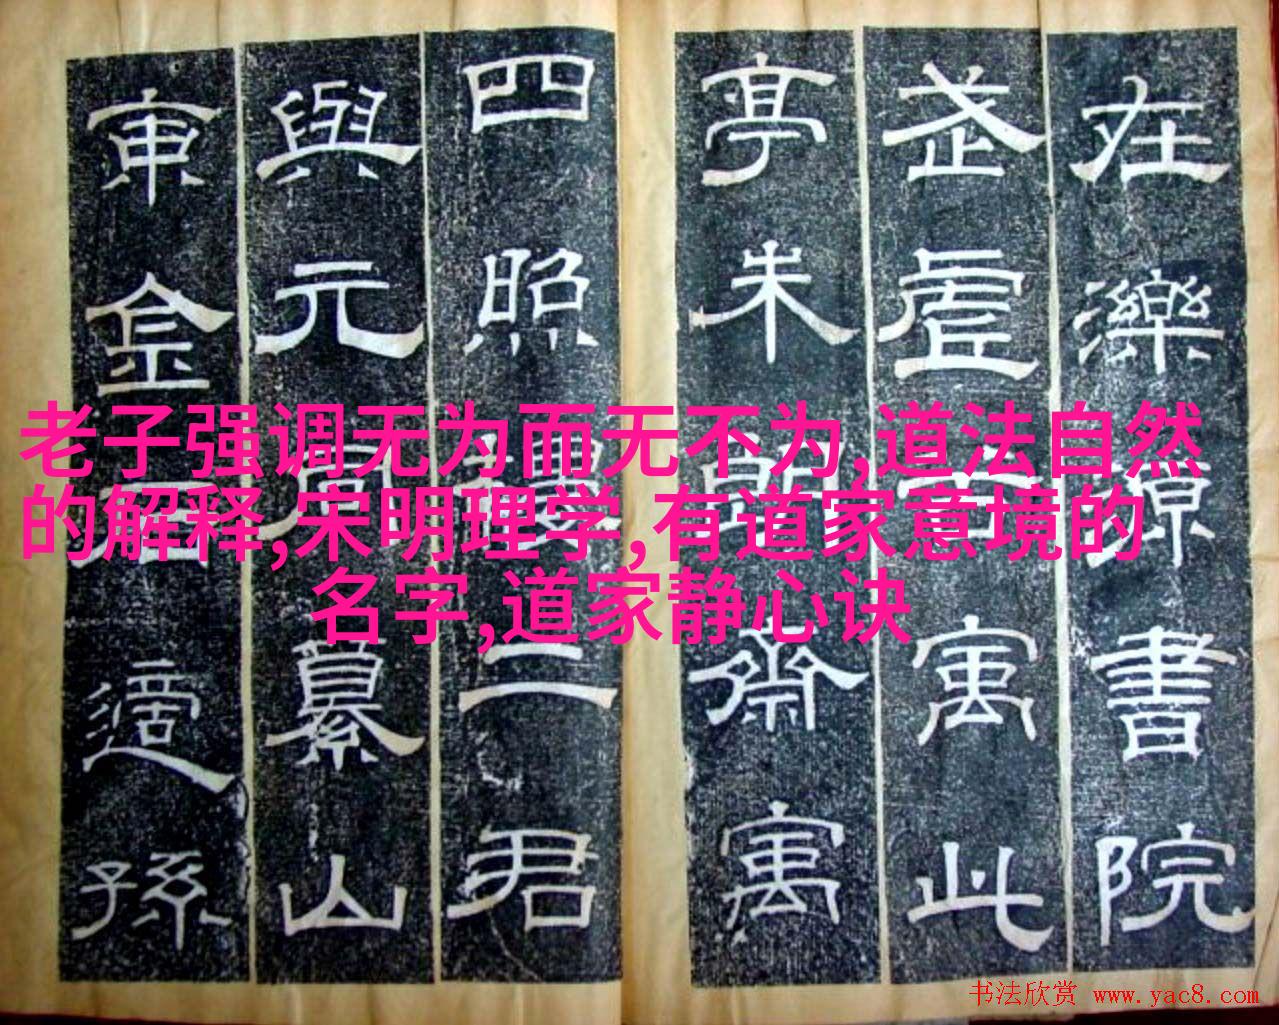 在濼源書院
武虛寓此
亭朱朗齋寓
四照樓二君
與元同纂山
東金石適孫
老子强调无为而无不为,道法自然
的解释,宋明理学,有道家意境的
名字,道家静心诀
书法欣赏 www.yac8.com